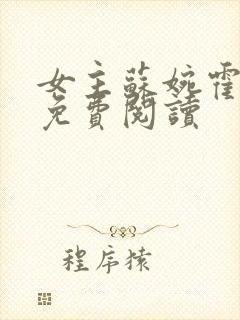 女主蘇婉霍
免費閱讀
程序猿